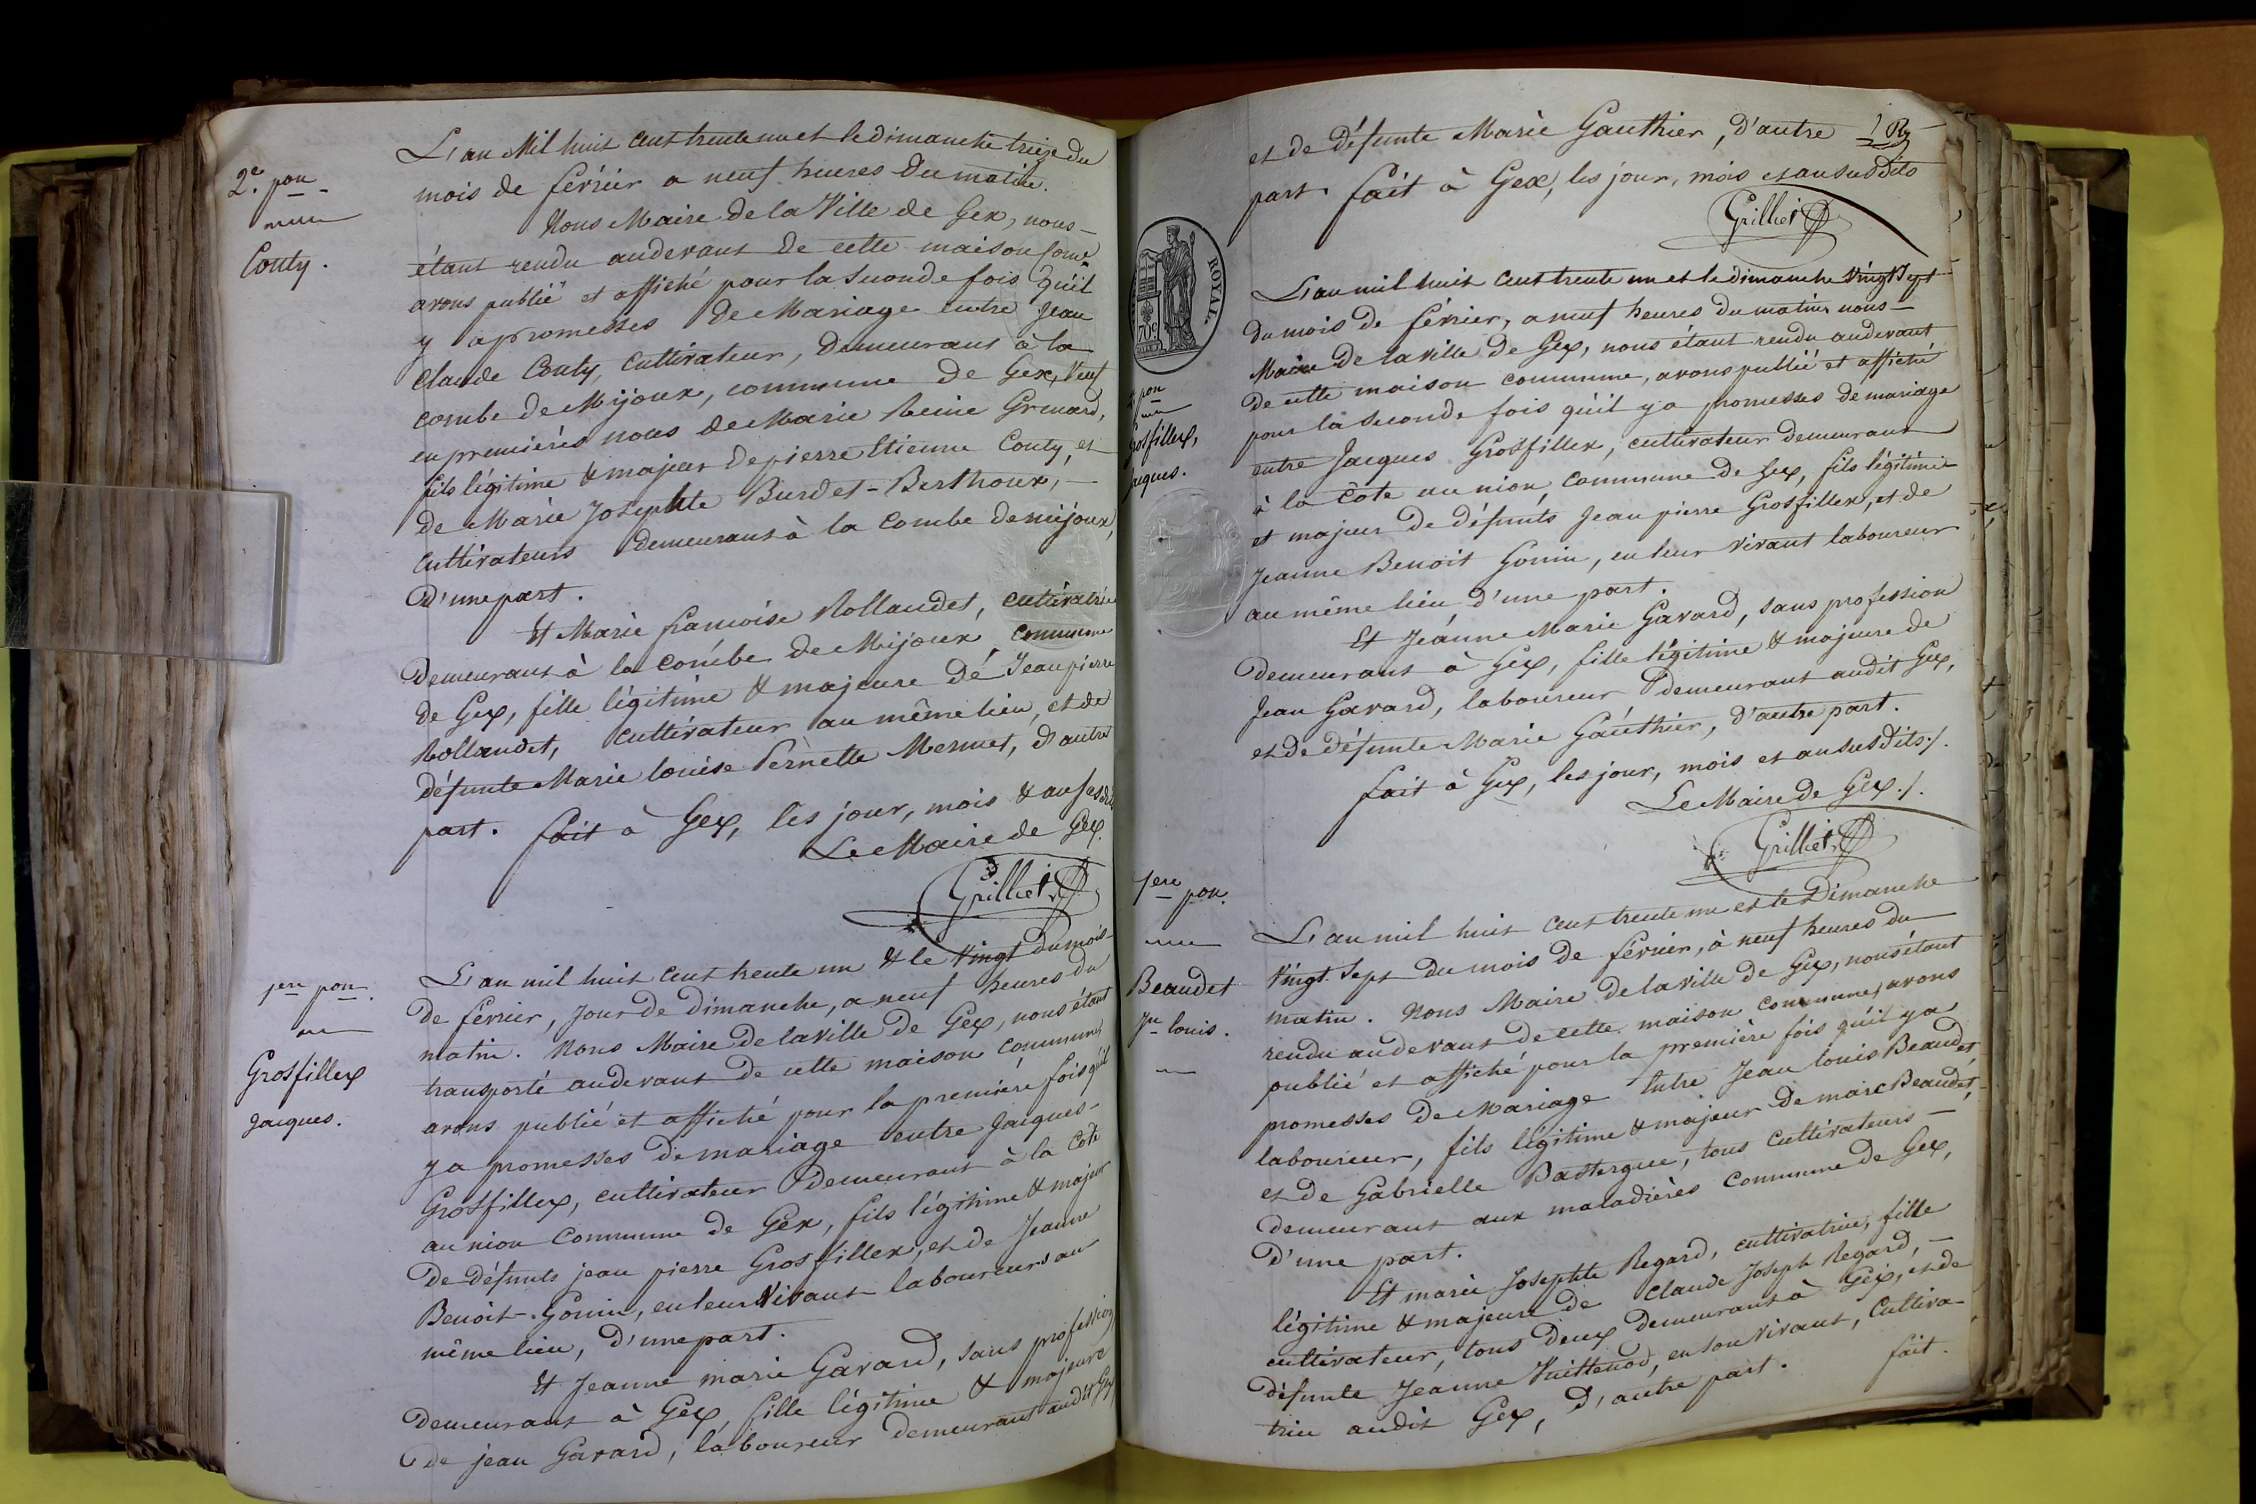 2.e pon
Conty.
L'an Mil huit cent trente un et le dimanche treize du
mois de février a neuf heures du matin.
Nous Maire de la Ville de Gex, nous
étant rendu audevant de cette maison comne
avons publié et affiché pour la seconde fois qu'il
y a promesses de Mariage entre Jean
Claude Conty, cultivateur, demeurant à la
combe de Mijoux, commune de Gex, Veuf
en premières noces de Marie Reine Grenard,
fils légitime & majeur de pierre Etienne Conty, et
de Marie Josephte Burdet-Berthoux,
cultivateurs demeurant à la Combe demijoux,
d'une part.
Et Marie francoise Rollandet, cultivatrice
demeurant à la combe de Mijoux, commune
de Gex, fille légitime & majeure de Jean pierre
Rollandet, cultivateur au même lieu, et de
défunte Marie louise Pernette Mermet, d'autre
part. fait à Gex, les jour, mois & an susdits
Le Maire de Gex.
Grilliet
1ere pon.
Grosfillex
Jacques.
L'an mil huit cent trente un & le Vingt du mois
de février, jour de dimanche, a neuf heures du
matin. Nous Maire de la ville de Gex, nous étant
transporté audevant de cette maison commune,
avons publié et affiché pour la première fois qu'il
y a promesses de mariage entre Jacques
Grosfillex, cultivateur demeurant à la Côte
au nion Commune de Gex, fils légitime & majeur
de défunts jean pierre Grosfillex, et de Jeanne
Benoit-Gonin, en leur Vivant laboureurs au
même lieu, d'une part.
Et Jeanne marie Gavard, sans profession
demeurant à Gex, fille légitime & majeure
de jean Gavard, laboureur demeurant audit Gex,
et de défunte Marie Gauthier, d'autre
part. fait à Gex, les jour, mois et an susdits
Grilliet
ROYAL.
70c
pon
Grosfillex,
Jacques.
L'an mil huit cent trente un et le dimanche Vingt Sept
du mois de février, a neuf heures du matin nous
Maire de la ville de Gex, nous étant rendu audevant
de cette maison commune, avons publié et affiché
pour la seconde fois qu'il y a promesses de mariage
entre Jacques Grosfillex, cultivateur demeurant
à la Côte au nion, Commune de Gex, fils légitime
et majeur de défunts Jean pierre Grosfillex, et de
Jeanne Benoit Gonin, en leur vivant laboureur
au même lieu d'une part.
Et Jeanne Marie Gavard, sans profession
demeurant à Gex, fille légitime & majeure de
Jean Gavard, laboureur demeurant audit Gex,
et de défunte Marie Gauthier, d'autre part.
fait à Gex, les jour, mois et an susdits./.
Le Maire de Gex./.
Grilliet
1ere pon.
Beaudet
Jn louis.
L'an mil huit cent trente un et le Dimanche
Vingt Sept du mois de février, à neuf heures du
matin. Nous Maire de la ville de Gex, nous étant
rendu audevant de cette maison commune, avons
publié et affiché pour la première fois qu'il y a
promesses de Mariage Entre Jean louis Beaudet,
laboureur, fils légitime & majeur de marc Beaudet,
et de Gabrielle Bastergue, tous Cultivateurs
demeurant aux maladières Commune de Gex,
d'une part.
Et marie Josephte Regard, cultivatrice, fille
légitime & majeure de Claude Joseph Regard,
cultivateur, tous deux demeurant à Gex, et de
défunte Jeanne Vuittenod, en son vivant, Cultiva-
trice audit Gex, d'autre part. fait.